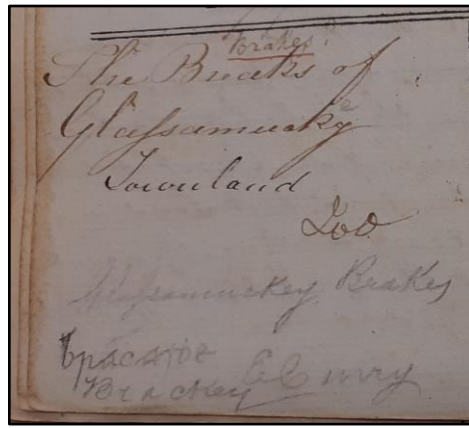 Brakes
The Breaks of
Glassamuckey
Townland
Glassamuckey Brakes
Brackey E Curry